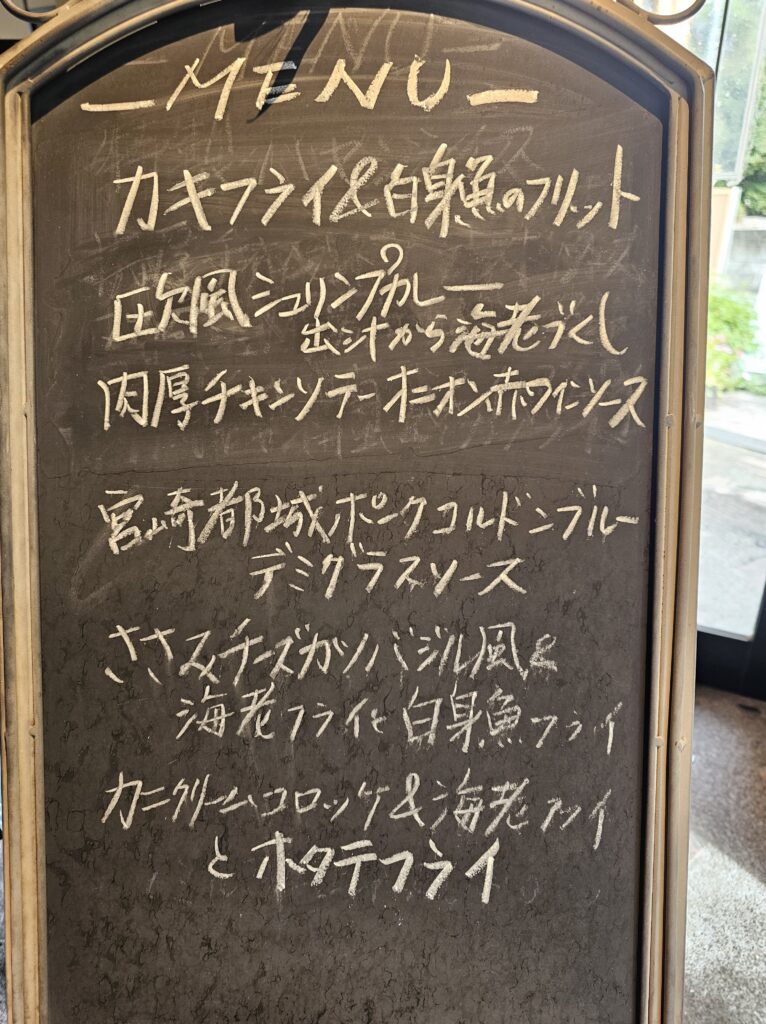 -MENU-
カキフライ&白身魚のフリット
欧風シュリンプカレー
出汁から海老づくし
肉厚チキンソテーオニオン赤ワインソース
宮崎都城ポークコルドンブルー
デミグラスソース
ささみチーズカツバジル風&
海老フライと白身魚フライ
カニクリームコロッケ&海老フライ
とホタテフライ